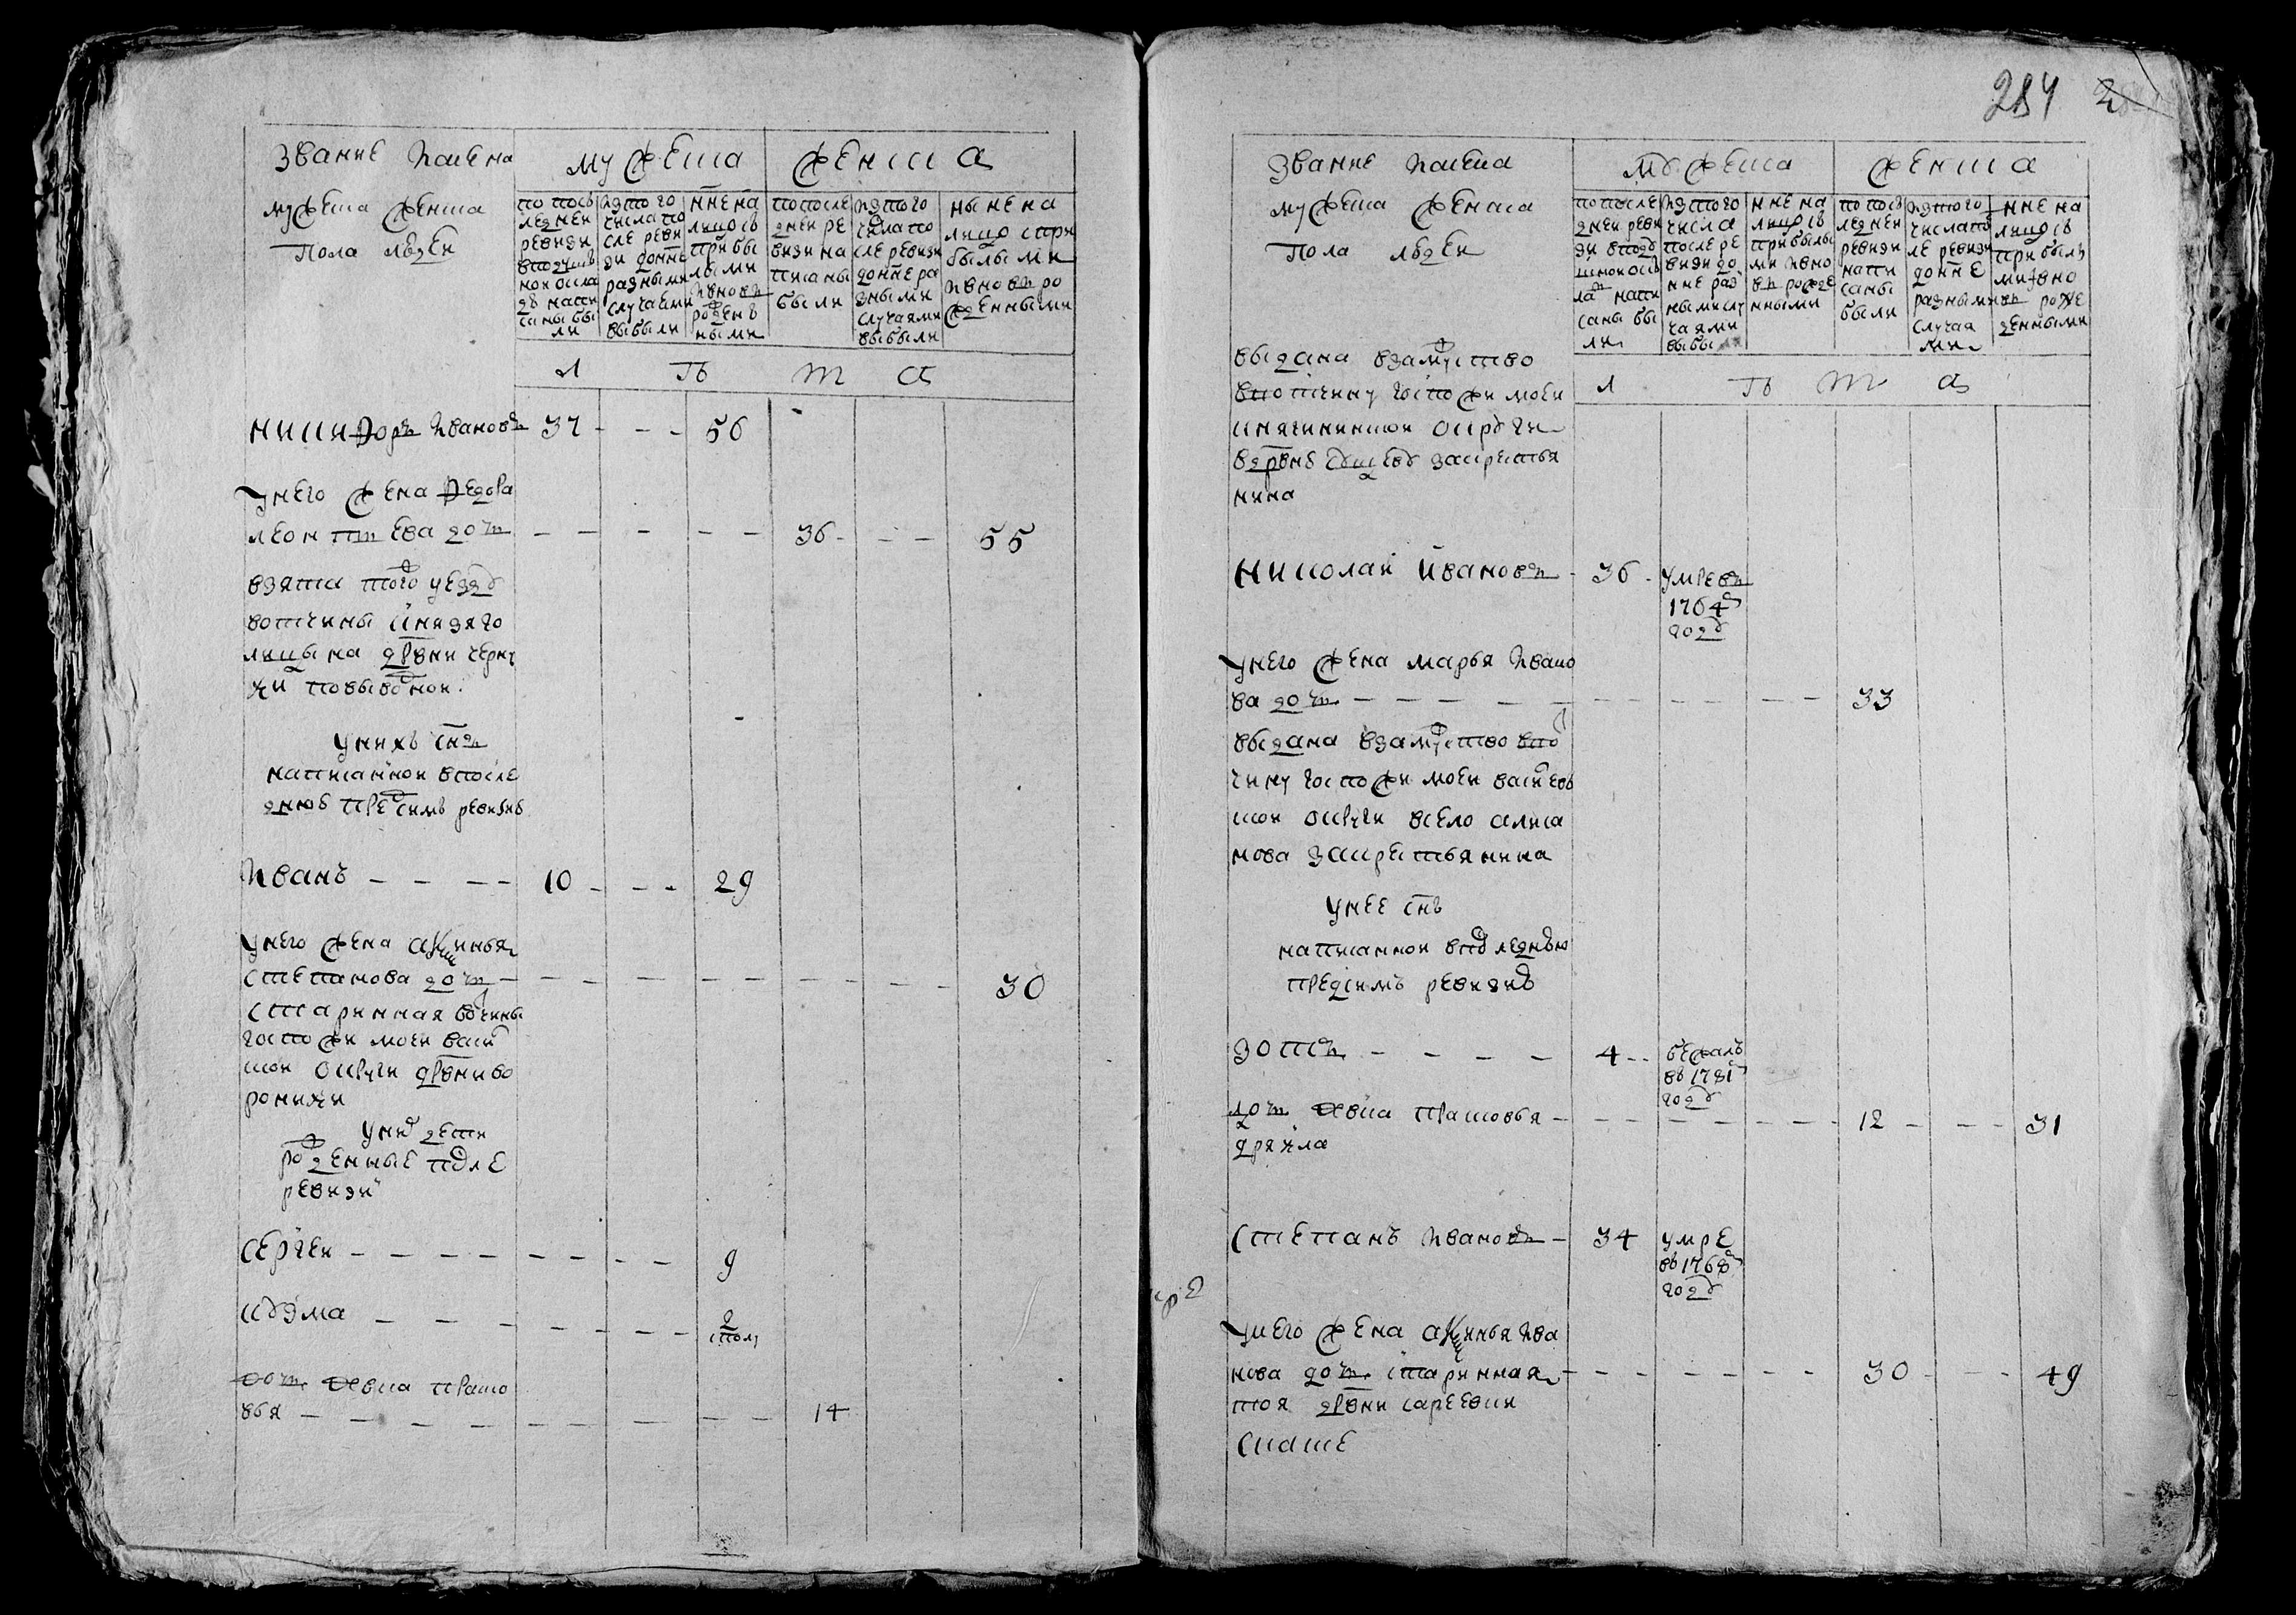 284
звание и имена
мужеска женска
пола людей
мужеска
женска
по после
дней
ревизи
в подуш
ной окла
дъ напи
саны бы
ли
из того
числа по
сле реви
зи до нне
разными
случаями
выбыли
нне на
лицо съ
прибы
лыми
и вновь
рожден
ными
по после
дней ре
визи на
писаны
были
из того
числа по
сле ревизи
до нне ра
зными
случаями
выбыли
ныне на
лицо с при
былыми
и вновь ро
жденными
л ъ т а
никифоръ ивановъ 37 - - - 56
у него жена федора
леонтьева дочь - - - - - 36 - - - 55
взята того уезду
вотчины князя го
лицына дрвни черну
хи по выводной
у нихъ снъ
написанной в после
днюю пред симъ ревизию
иванъ - - - - 10 - - - 29
у него жена аксинья
степанова дочь - - - - - - - - - - 30
старинная вотчины
госпожи моей
ской округи дрвни во
ронихи
у них дети
рожденные после
ревизи
сергей - - - - - - - - 9
кузма - - - - - - - 2
с пол
дочь девка праско
вья - - - - - - - - 14
звание и имена
мужеска женска
пола людей
мужеска
женска
по после
дней реви
зи в поду
шной ок
лад напи
саны бы
ли
из того
числа
после ре
визи до
нне раз
ными слу
чаями
выбы
нне на
лицо съ
прибылы
ми и вно
вь рожде
нными
по пось
ледней
ревизи
напи
саны
были
из того
числа по
ле ревизи
до нне
разными
случая
ми
нне на
лицо съ
прибылы
ми и вно
вь рож
денными
л ъ т а
выдана в замужство
в вотчину госпожи моей
княгининской округи
в дрвню за крестья
нина
николай ивановъ - 36 - умре въ
1764
году
у него жена марья ивано
ва дочь - - - - - - - - - - 33
выдана в замужство в вот
чину госпожи моей
ской округи в село
нова за крестьянина
у нее снъ
написанной в последнюю
пред симъ ревизию
зотъ - - - - 4 - - бежалъ
въ 1781
году
дочь девка прасковья - - - - - - - - 12 - - - 31
дряхла
степанъ ивановъ - 34 умре
въ 1768
году
у него жена аксинья ива
нова дочь старинная - - - - - - - 30 - - - 49
тоя дрвни сареевки